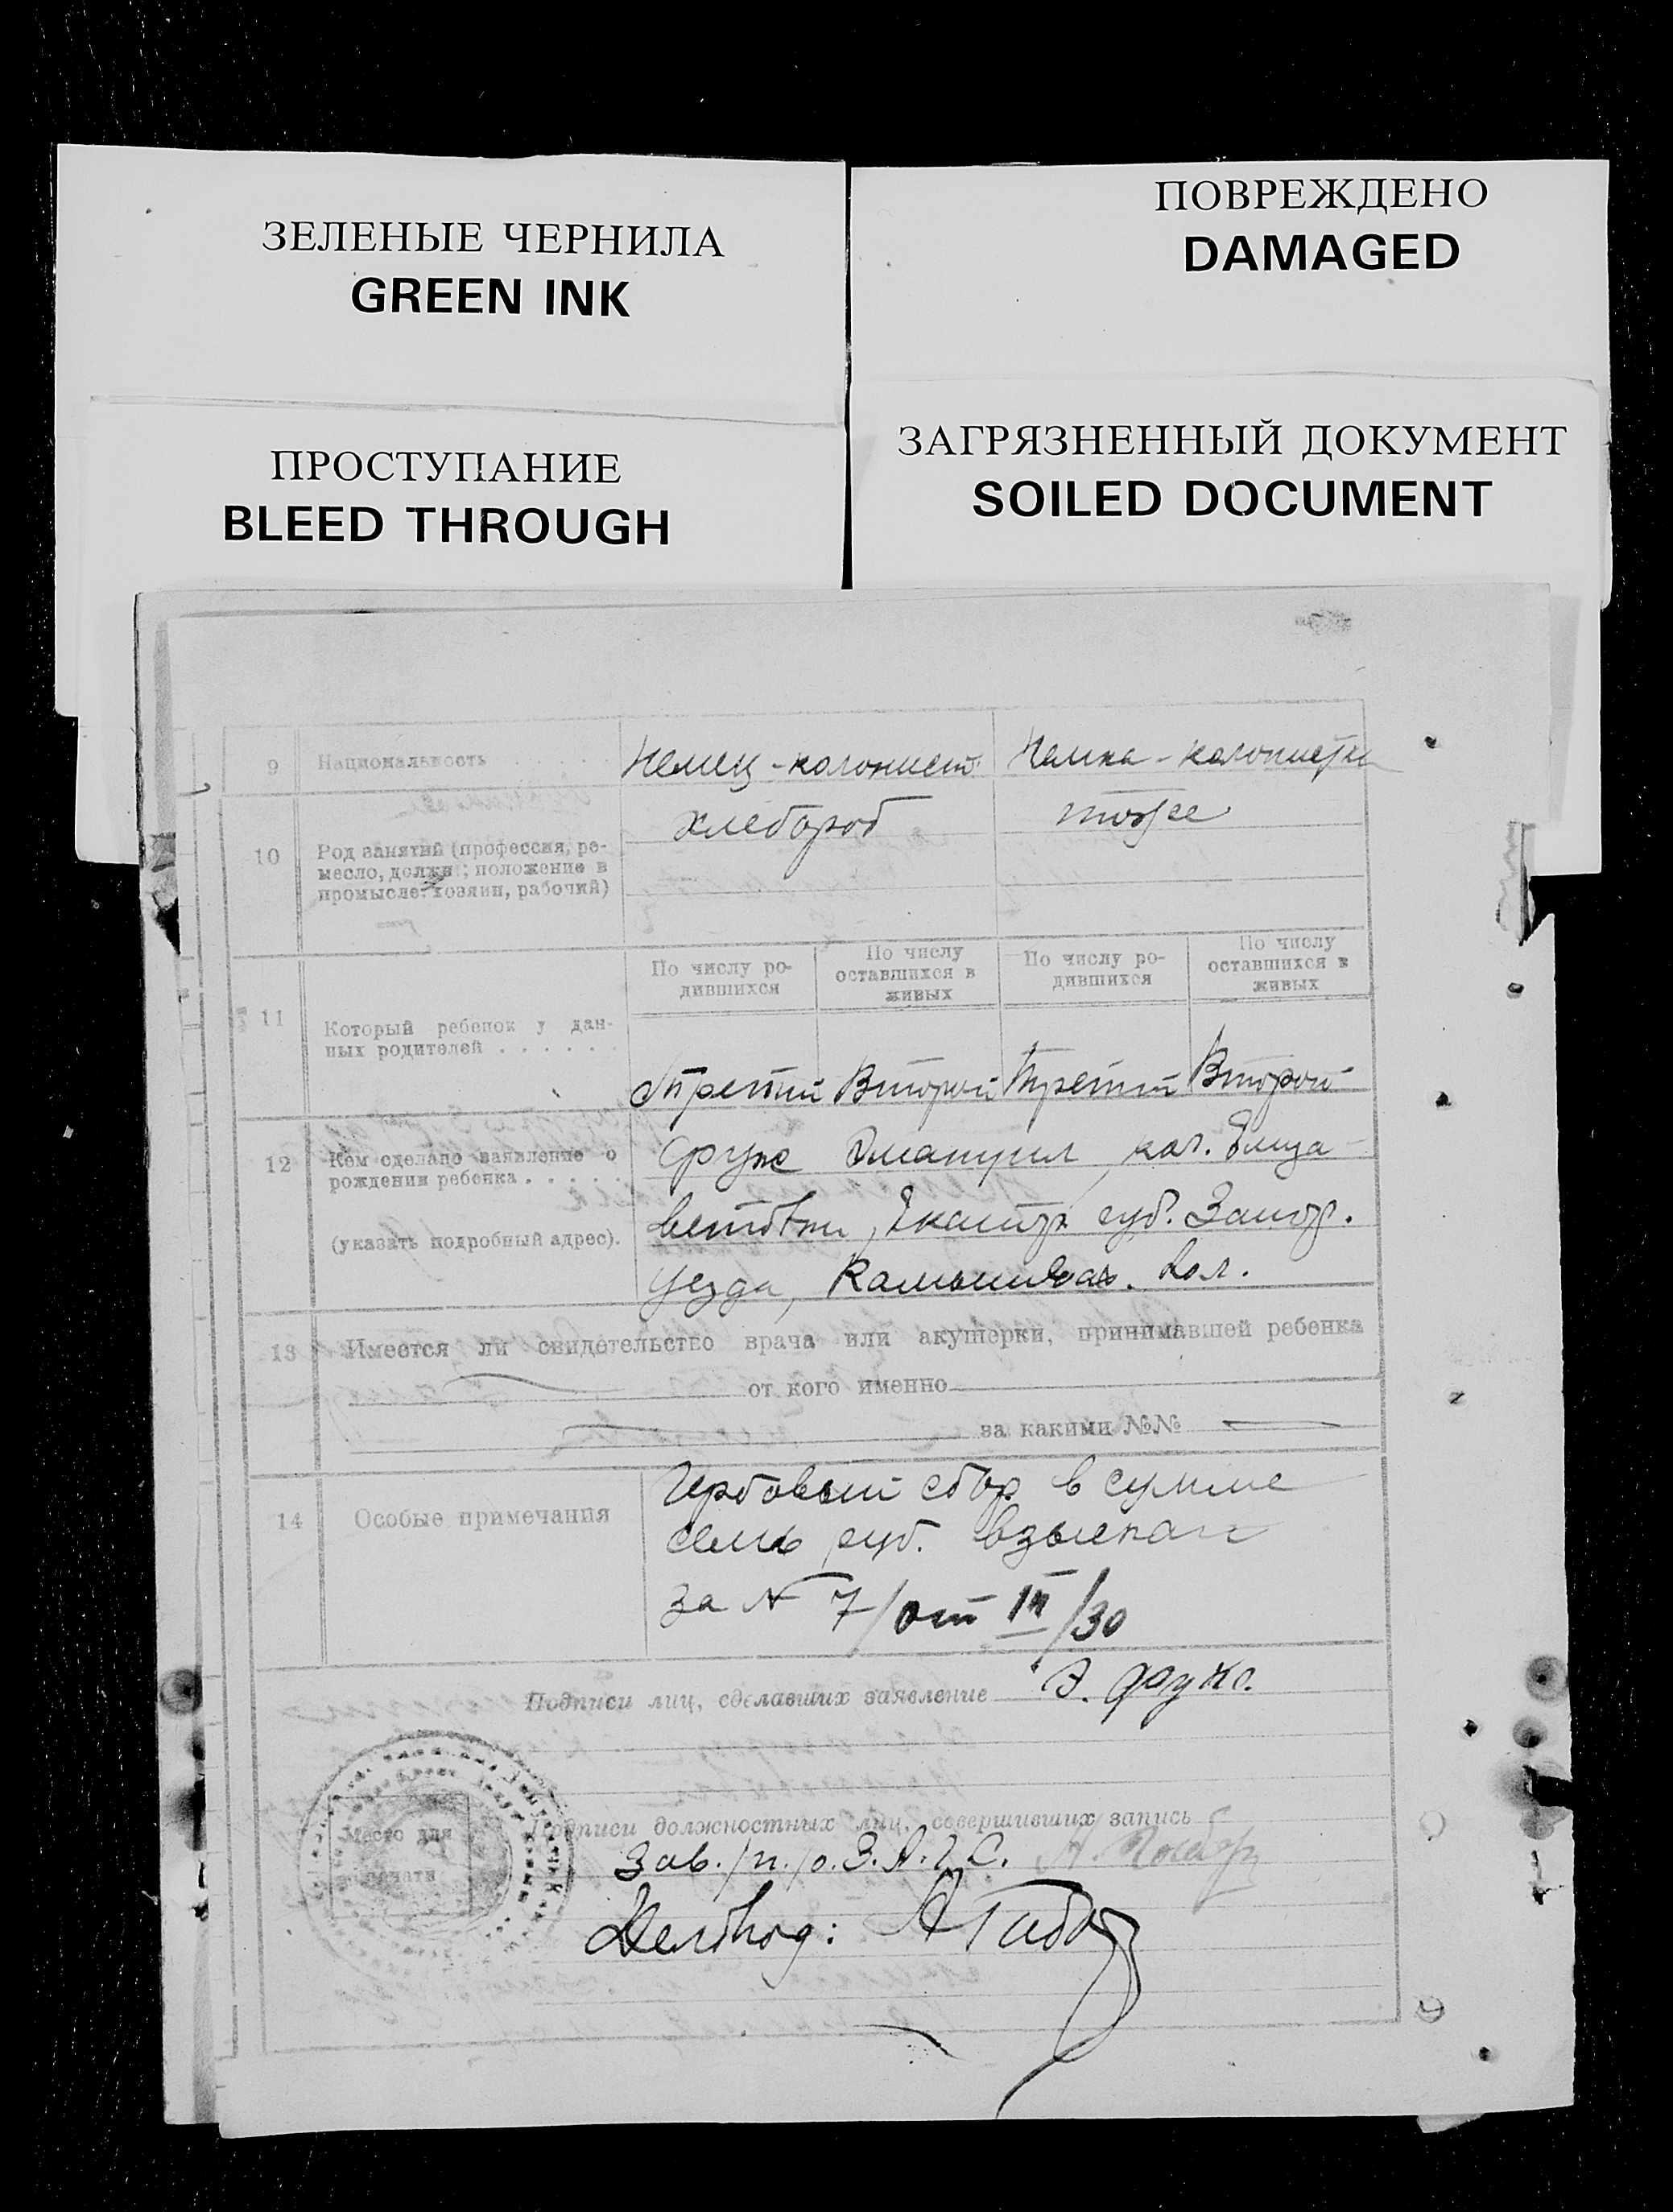 ЗЕЛЕНЫЕ ЧЕРНИЛА
GREEN INK
ПОВРЕЖДЕНО
DAMAGED
ПРОСТУПАНИЕ
BLEED THROUGH
ЗАГРЯЗНЕННЫЙ ДОКУМЕНТ
SOILED DOCUMENT
9 Национальность Немец-колонист Немка-колонистка
10 Род занятий (профессия, ре-
месло, должн; положение в
промысле: хозяин, рабочий)
хлебороб тоже
11 Который ребенок у дан-
ных родителей
По числу ро-
дившихся
По числу
оставшихся в
живых
По числу ро-
дившихся
По числу
оставшихся в
живых
Третий Второй Третий Второй
12 Кем сделано заявление о
рождении ребенка
(указать подробный адрес).
Фукс Эмануил, кол. Елиза-
ветовки, Екатер. губ. Запор.
уезда, Камышевах. вол.
13 Имеется ли свидетельство врача или акушерки, принимавшей ребенка
от кого именно
за какими №№
14 Особые примечания
Гербовый сбор в сумме
семь руб. взыскан
за № 7/от III/30
Подписи лиц, сделавших заявление Э. Фукс.
Место для
печати
Подписи должностных лиц, совершивших запись
Зав. /п./о. З.А.Г.С.
Делопод: